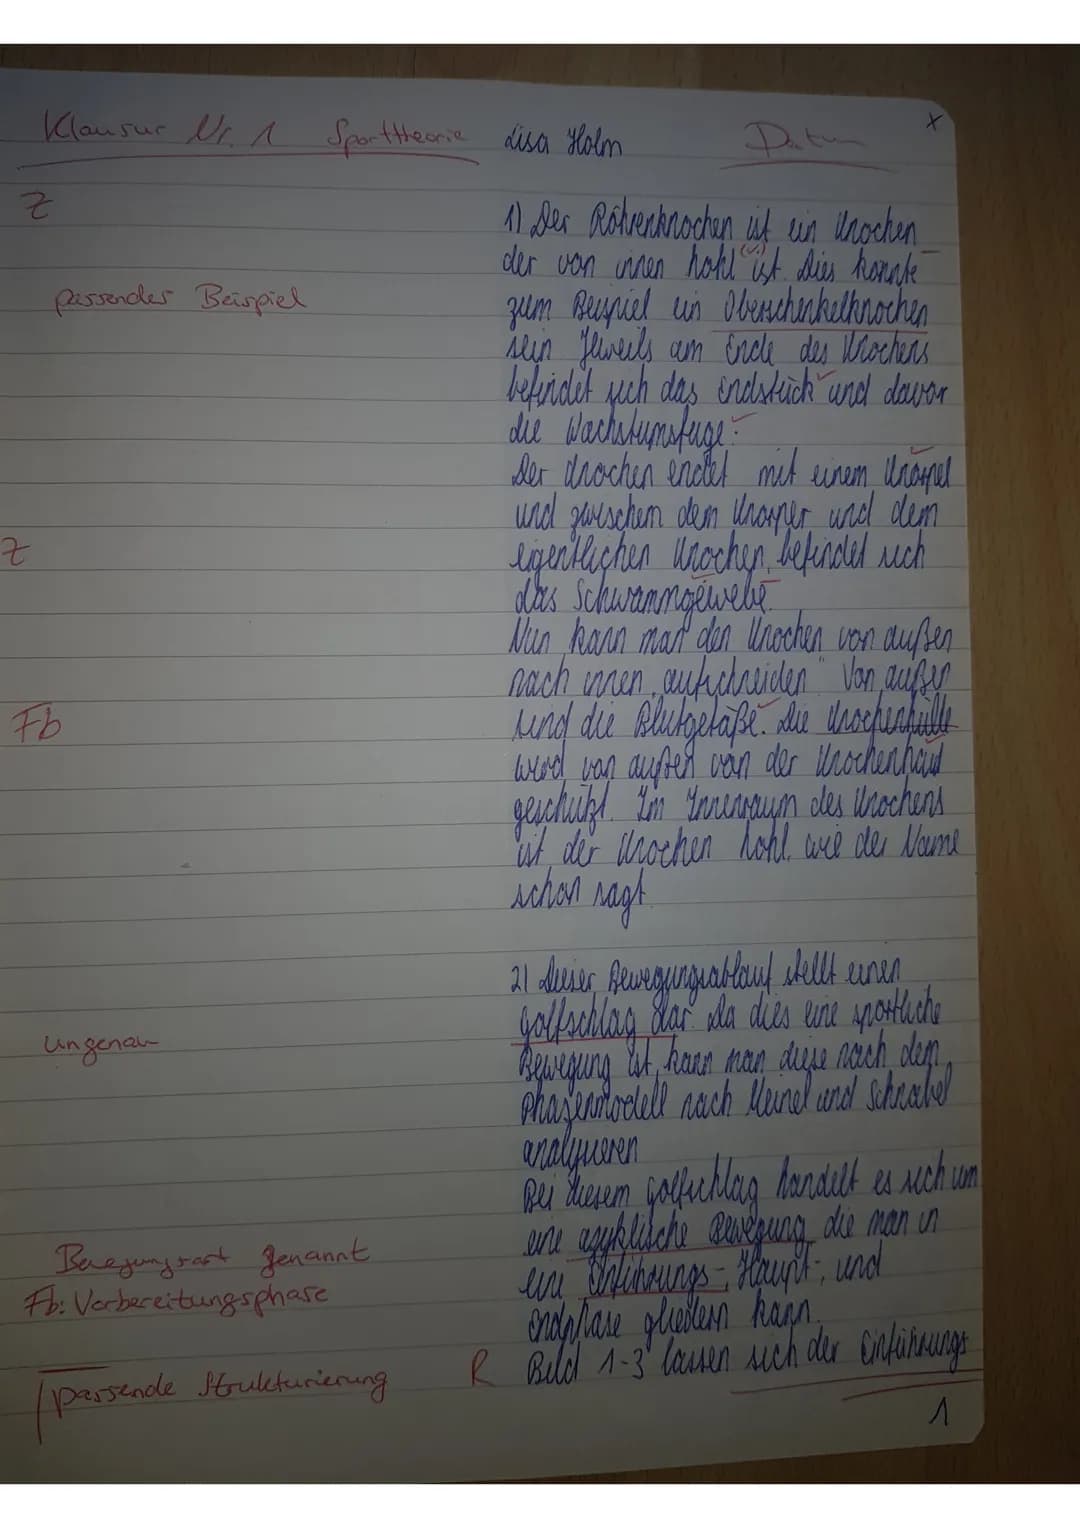 Klausur Nr. 1 Sporttheorie Lisa Holm Datum
x
Z
1) Der Röhrenknochen ist ein Knochen
der von innen hohl ist. Dies könnte
passendes Beispiel
zum Beispiel ein Oberschenkelknochen
sein. Jeweils am Ende des Knochens
befindet sich das Endstück und davor
die Wachstumsfuge.
Der Knochen endet mit einem Knorpel
und zwischem dem Knorper und dem
Z
eigentlichen Knochen, befindet sich
das Schwammgewebe.
Nun kann man den Knochen von außen
nach innen „aufschneiden". Von außen
Fb
sind die Blutgefäße. Die Knochenhülle
wird von außen von der Knochenhaut
geschützt. Im Innenraum des Knochens
ist der Knochen hohl, wie der Name
schon sagt.
2) Dieser Bewegungsablauf stellt einen
Golfschlag dar. Da dies eine sportliche
ungenau
Bewegung ist, kann man diese nach dem
Phasenmodell nach Meinel und Schnabel
analysieren
Bei diesem Golfschlag handelt es sich um
eine azyklische Bewegung die man in
Bewegungsart genannt
eine Einführungs-, Haupt-, und
Fb: Vorbereitungsphase
Endphase gliedern kann.
passende Strukturierung R Bild 1-3 lassen sich der Einführungs
1